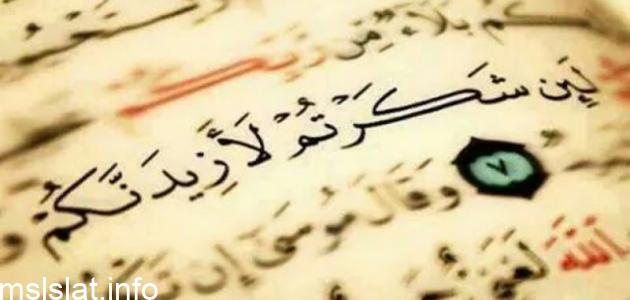 بَلَاءٌ مِّن رَّبِّكُمْ
لَئِن شَكَرْتُمْ لَأَزِيدَنَّكُمْ
٧ وَقَالَ مُوسَىٰ إِن
اللَّهَ
mslslat.info